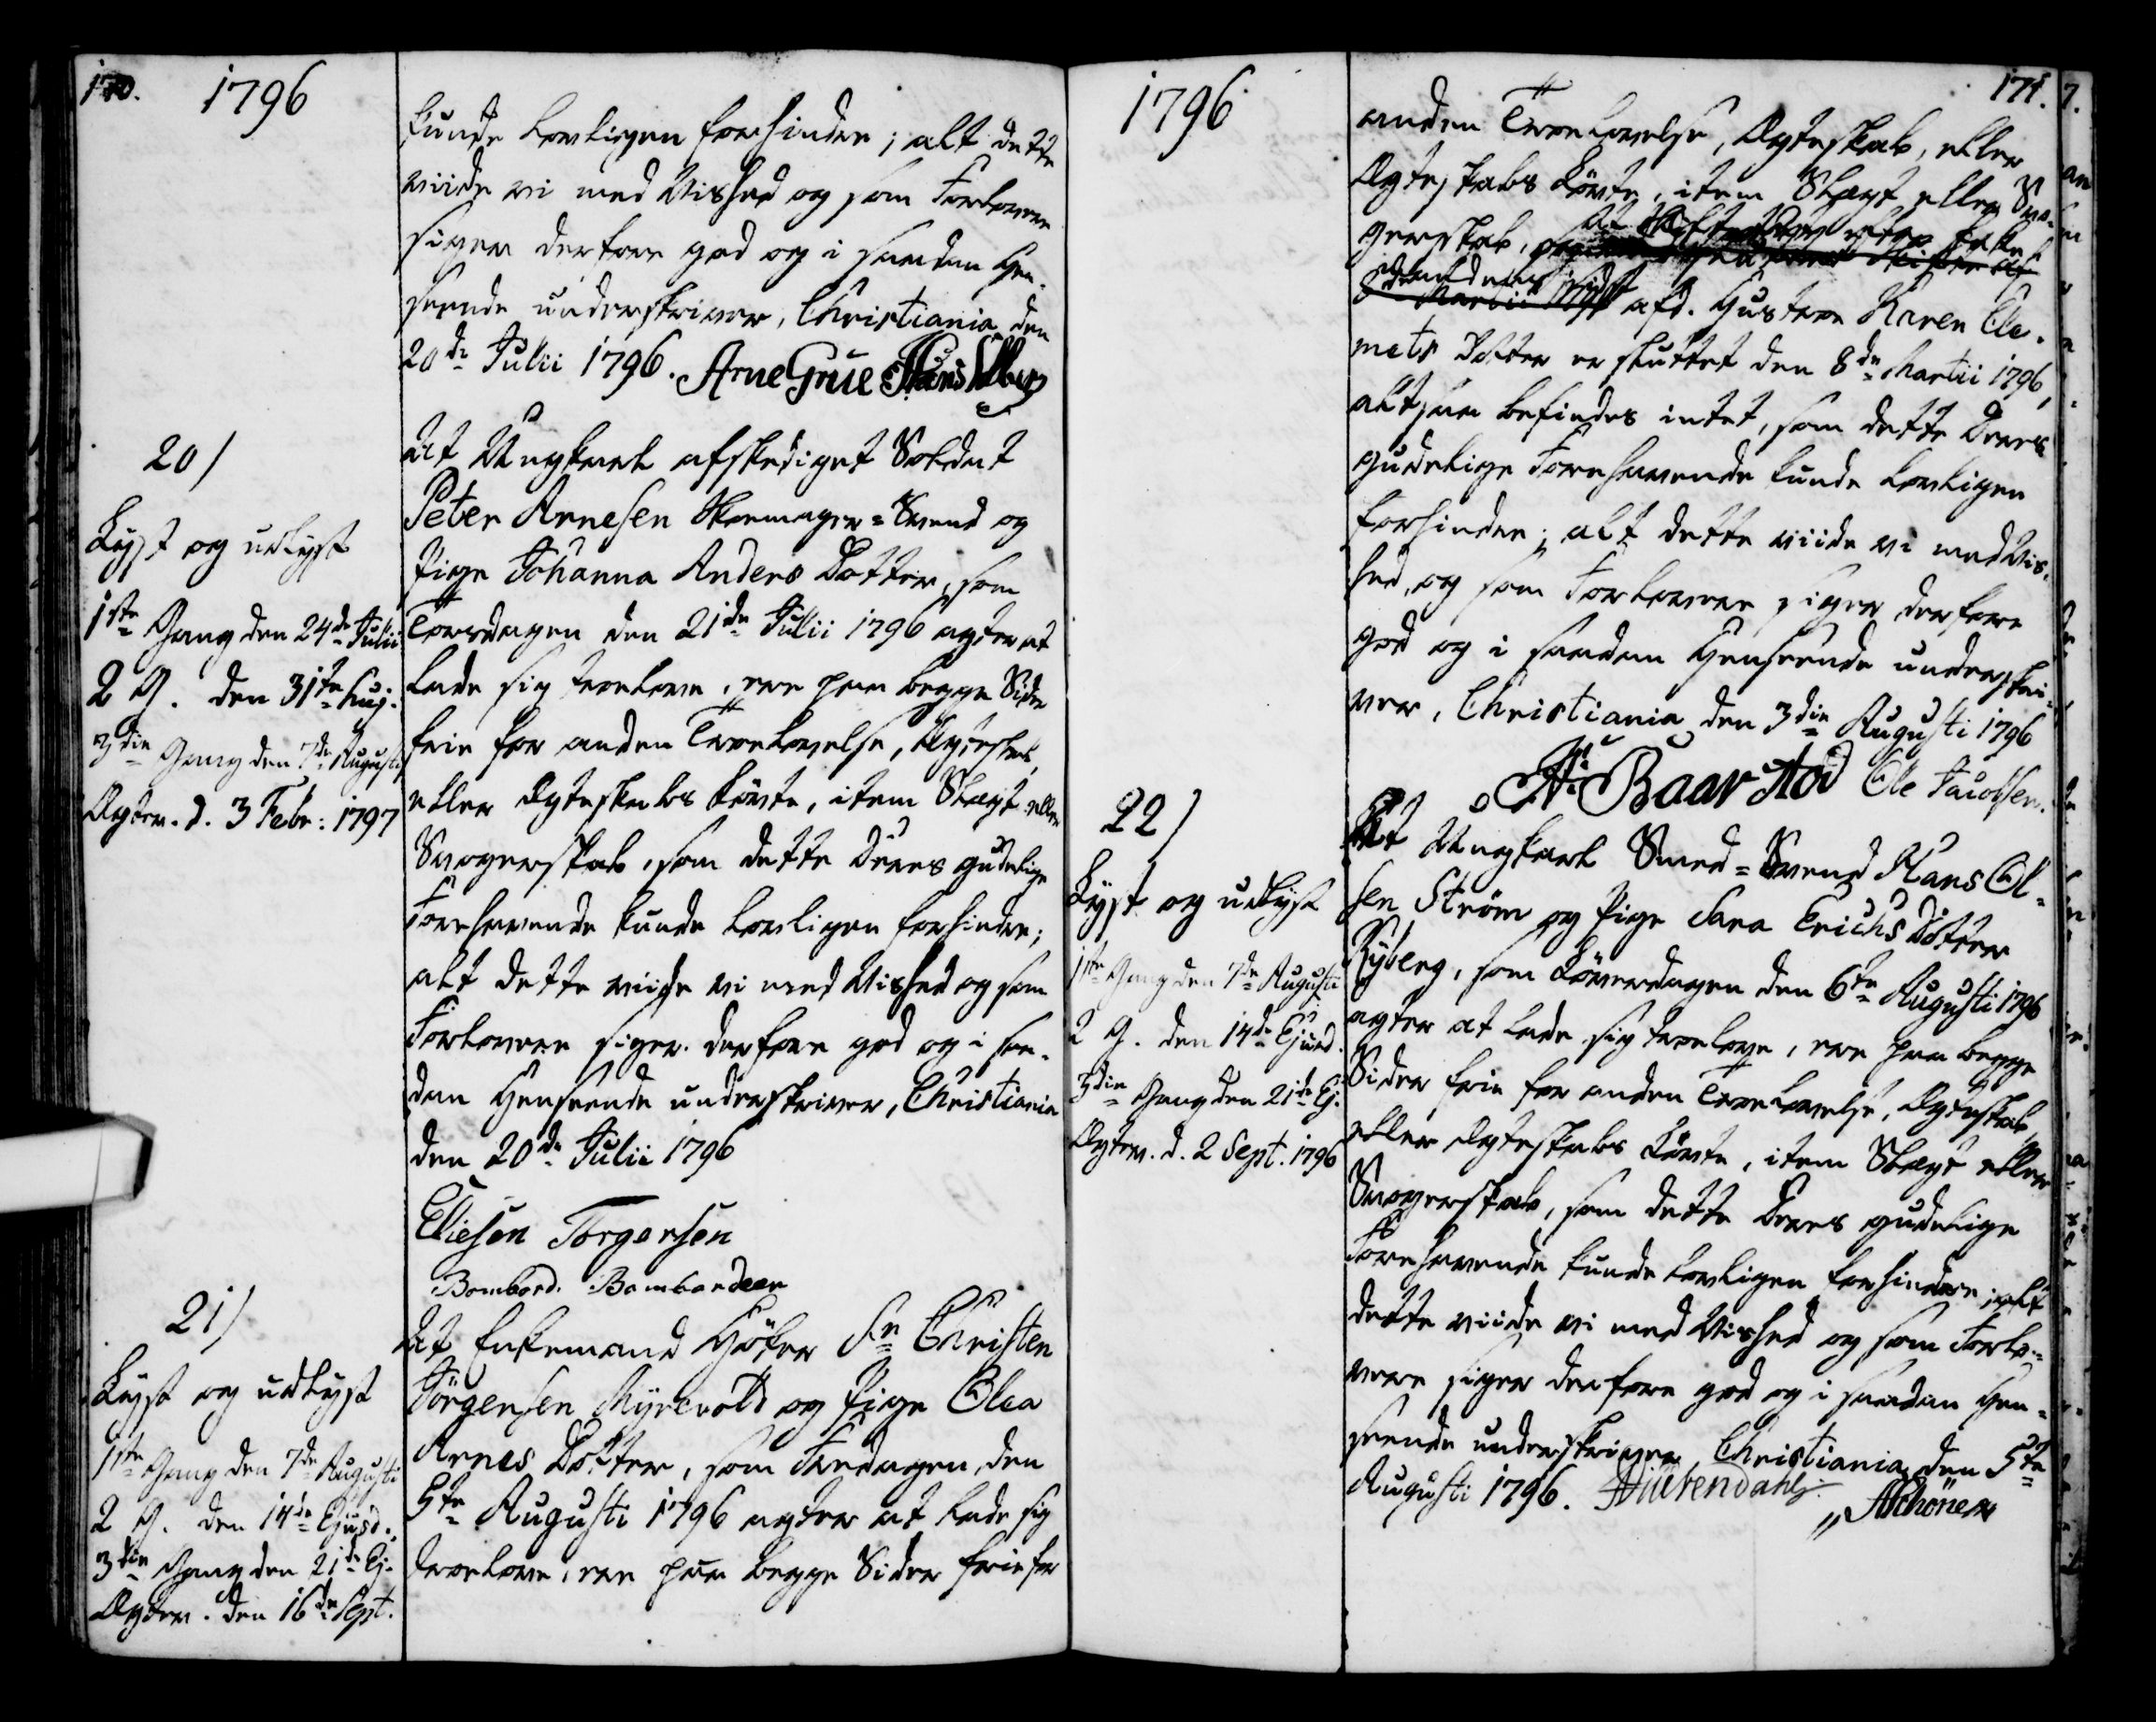 170.
1796
kunde lovligen forhindre; alt dette
viide vi med Vished og som Forlovere
siger derfore god og i saadan Hen-
seende underskriver, Christiania den
20de Julii 1796. Arne Grue Hans
20/
Lyst og udlyst
1ste Gang den 24de Julii
2 G. den 31te Aug.
3die Gang den 7de Augusti
Ægtev. d. 3 Febr: 1797
At Ungkarl afskediget Soldat
Peter Arnesen Skomager-Svend og
Pige Johanna Anders Dotter, som
Torsdagen den 21de Julii 1796 agter at
lade sig trolove, ere paa begge Sider
frie for anden Troelovelse, Ægteskab,
eller Ægteskabs Løvte, item Slægt eller
Svogerskab, som dette Deres gudelige
Forehavende kunde lovligen forhindre;
alt dette viide vi med Vished og som
Forlovere siger derfore god og i saa-
dan Henseende underskriver, Christiania
den 20de Julii 1796
Eliesen Torgersen
Bombard. Bombardeer
21/
Lyst og udlyst
1ste Gang den 7de Augusti
2 G. den 14de Ejusd.
3die Gang den 21de Ej.
Ægtev. den 16de Sept.
At Enkemand Høker Sr Christen
Jörgensen Myrevold og Pige Olea
Arnes Dotter, som Fredagen den
5te Augusti 1796 agter at lade sig
troelove, ere paa begge Sider frie for
1796
171.
anden Troelovelse, Ægteskab, eller
Ægteskabs Løvte, item Slægt eller Svo-
gerskab, at Skifte efter
afd. Hustroe Karen Cle-
mets Dotter er sluttet den 8de Martii 1796,
altsaa befindes intet, som dette Deres
gudelige Forehavende kunde lovligen
forhindre; alt dette viide vi med Vis-
hed, og som Forlovere siger derfore
god og i saadan Henseende underskri-
ver, Christiania den 3die Augusti 1796
Baarstad Ole Jacobsen.
22/
Lyst og udlyst
1ste Gang den 7de Augusti
2 G. den 14de Ejusd.
3die Gang den 21de Ej.
Ægtev. d. 2 Sept. 1796
At Ungkarl Smed-Svend Hans Ol-
sen Ström og Pige Sara Erichs Dotter
Ryberg, som Løverdagen den 6te Augusti 1796
agter at lade sig troelove, ere paa begge
Sider frie for anden Troelovelse, Ægteskab,
eller Ægteskabs Løvte, item Slægt eller
Svogerskab, som dette Deres gudelige
Forehavende kunde lovligen forhindre; alt
dette viide vi med Vished og som Forlo-
vere siger derfore god og i saadan Hen-
seende underskriver, Christiania den 5te
Augusti 1796.